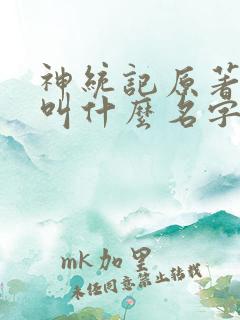 神統記原著
叫什麼名字
mk加里
未經同意禁止轉載